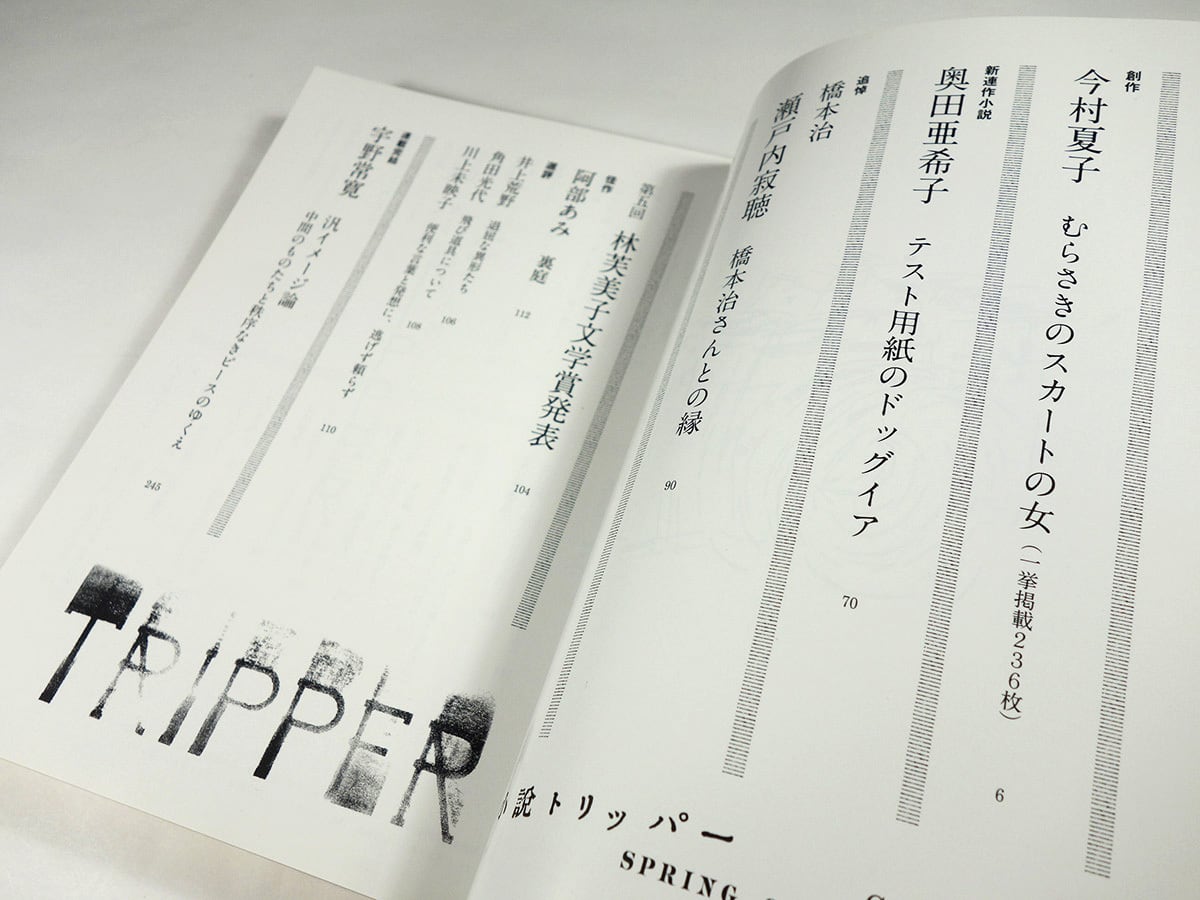 創作
今村夏子 むらさきのスカートの女(一挙掲載236枚)
6
新連作小説
奥田亜希子 テスト用紙のドッグイア
70
追悼
橋本治
瀬戸内寂聴 橋本治さんとの縁
90
第五回 林芙美子文学賞発表
104
佳作
阿部あみ 裏庭
112
選評
井上荒野 退屈な異形たち
106
角田光代 飛び道具について
108
川上未映子 便利な言葉と発想に、逃げず頼らず
110
連載完結
宇野常寛 汎イメージ論
中間のものたちと秩序なきピースのゆくえ
245
TRIPPER
小説トリッパー
SPRING